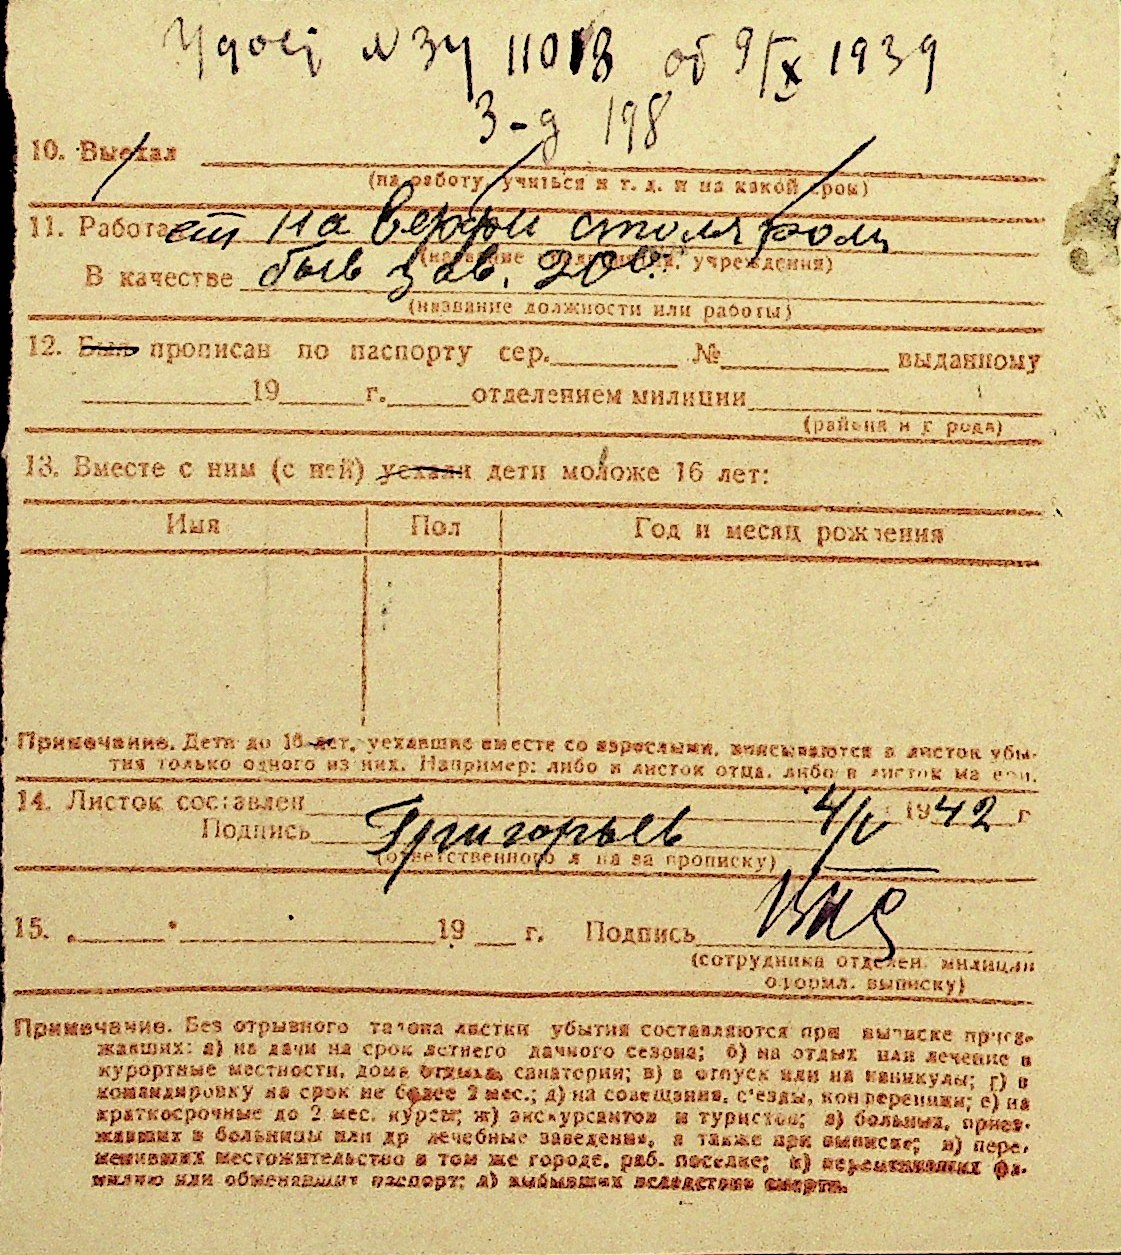 Удост N ЗУ 11018 от 9/X 1939
3-д 198
10. Выехал
(на работу, учиться и т. д. и на какой срок)
11. Работает на верфи столяром
(название предприятия, учреждения)
В качестве быв зав. 200.
(название должности или работы)
12. Был прописан по паспорту сер. № выданному
19 г. отделением милиции
(района и города)
13. Вместе с ним (с ней) уехали дети моложе 16 лет:
Имя Пол Год и месяц рождения
Примечание. Дети до 16 лет, уехавшие вместе со взрослыми, вписываются в листок убы-
тия только одного из них. Например: либо в листок отца, либо в листок матери.
14. Листок составлен 4/V 1942 г
Подпись Григорьев
(ответственного лица за прописку)
15. " " 19 г. Подпись
(сотрудника отделен. милиции
оформл. выписку)
Примечание. Без отрывного талона листки убытия составляются при выписке приез-
жавших: а) на дачи на срок летнего дачного сезона; б) на отдых или лечение в
курортные местности, дома отдыха, санатории; в) в отпуск или на каникулы; г) в
командировку на срок не более 2 мес.; д) на совещания, с'езды, конференции; е) на
краткосрочные до 2 мес. курсы; ж) экскурсантов и туристов; з) больных, приез-
жавших в больницы или др лечебные заведения, а также при выписке; и) пере-
менивших местожительство в том же городе, раб. поселке; к) переменивших фа-
милию или обменявших паспорт; л) выбывших вследствие смерти.